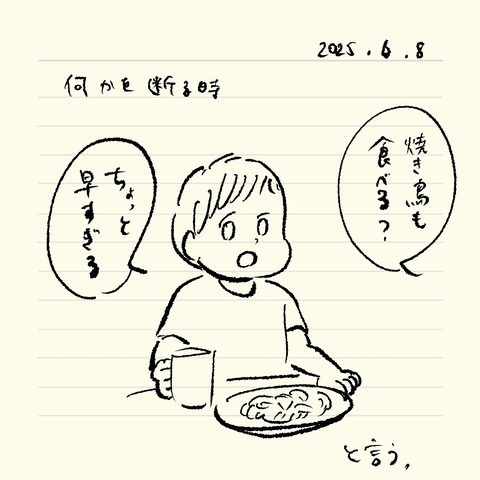 2025.6.8
何かを断る時
焼き鳥も
食べる?
ちょっと
早すぎる
と言う。